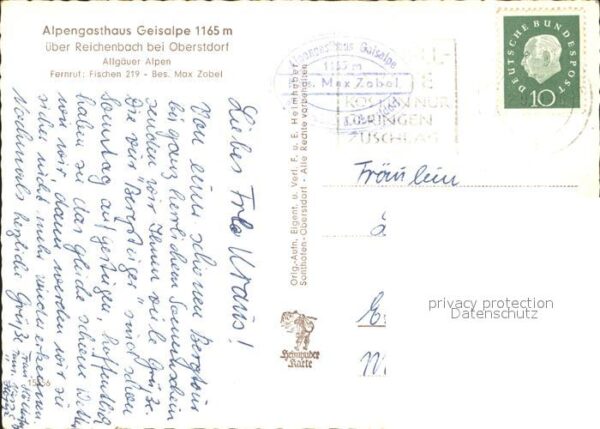 Alpengasthaus Geisalpe 1165 m
über Reichenbach bei Oberstdorf
Allgäuer Alpen
Fernruf: Fischen 219 - Bes. Max Zobel
Alpengasthaus Geisalpe
1165 m
Bes. Max Zobel
KOSTEN NUR
GERINGEN
ZUSCHLAG
DEUTSCHE BUNDESPOST
10
Liebes Frl. Kraus!
Von einer schönen Bergtour
bei ganz herrlichem Sonnenschein
senden wir Ihnen viele Grüße.
Die vier "Bergsteiger" sind schon
Sonntag aufgestiegen, hoffentlich
haben sie das gleiche schöne Wetter
wenn wir dann werden wir sie
sicher nicht mehr wiedererkennen.
Nochmals herzliche Grüße
Orig.-Aufn. Eigent. u. Verl. F. u. E. Heimhuber
Sonthofen-Oberstdorf - Alle Rechte vorbehalten
Heimhuber
Karte
Fräulein
privacy protection
Datenschutz